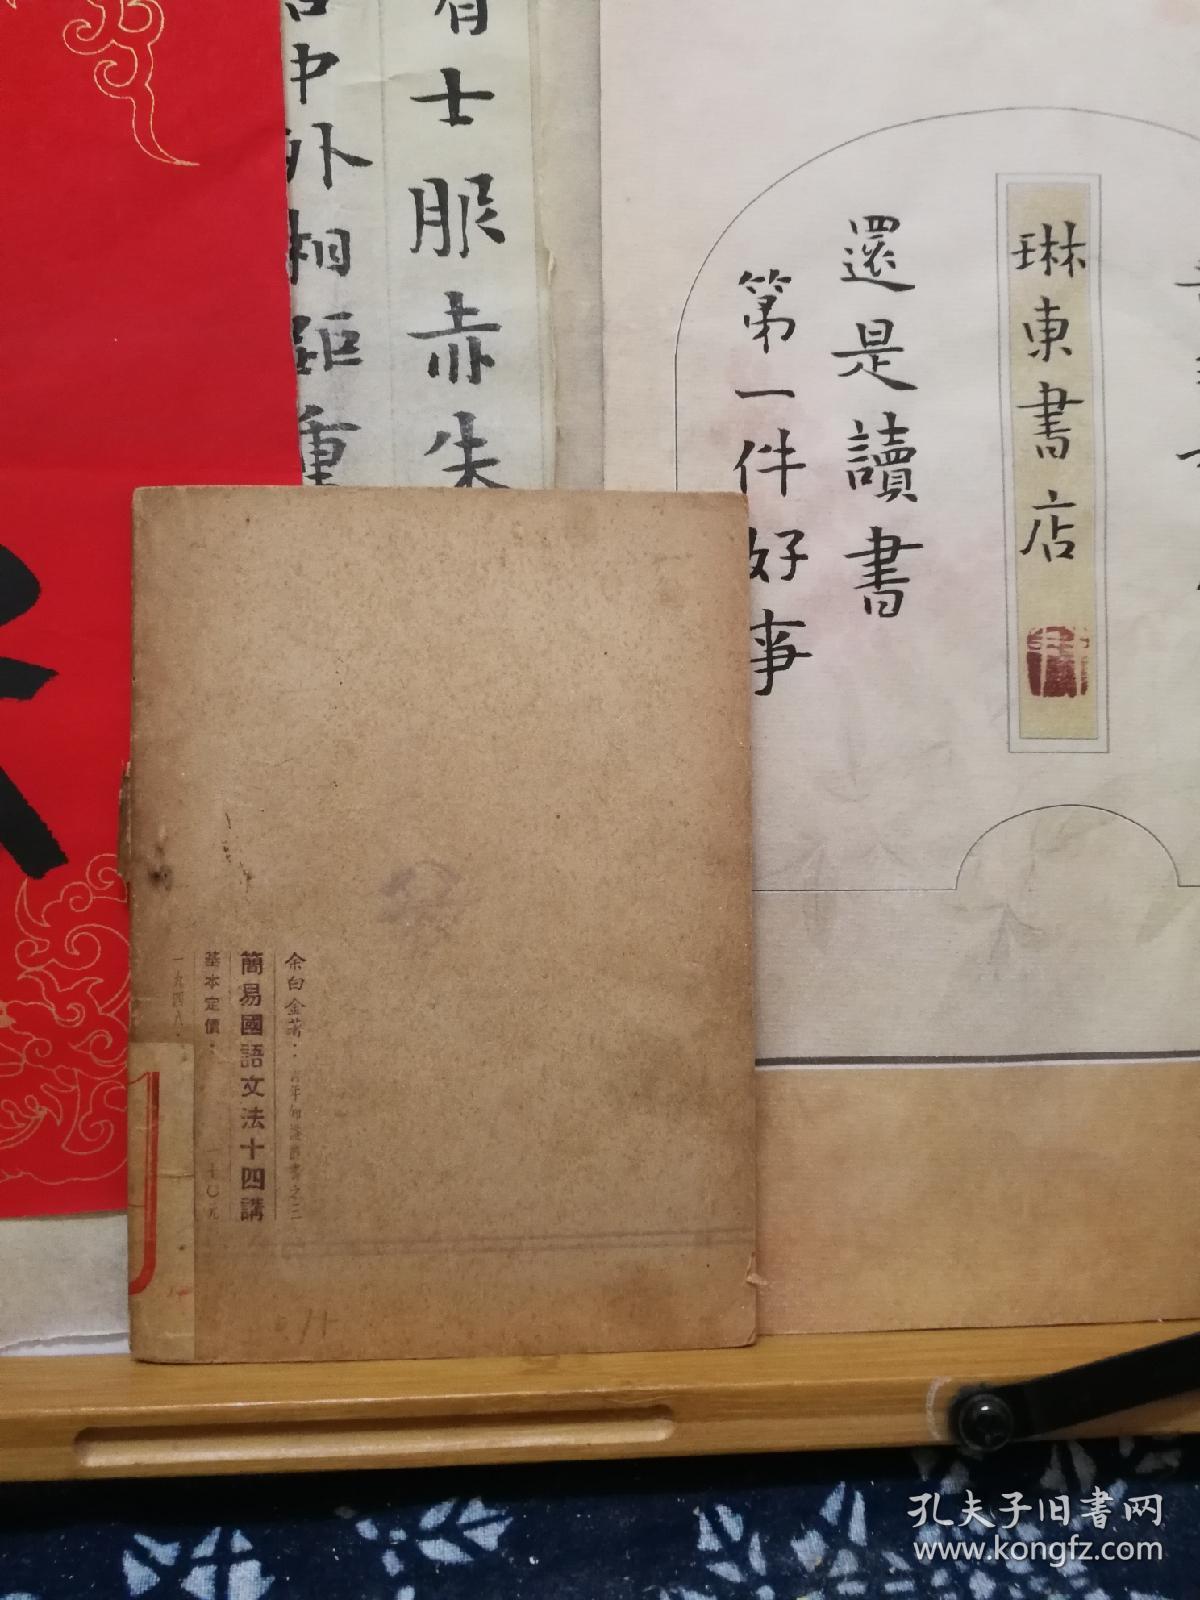 琳東書店
還是讀書
第一件好事
有士服赤朱
中外相距重
余白金著
簡易國語文法十四講
基本定價
一九四八
孔夫子旧書网
www.kongfz.com